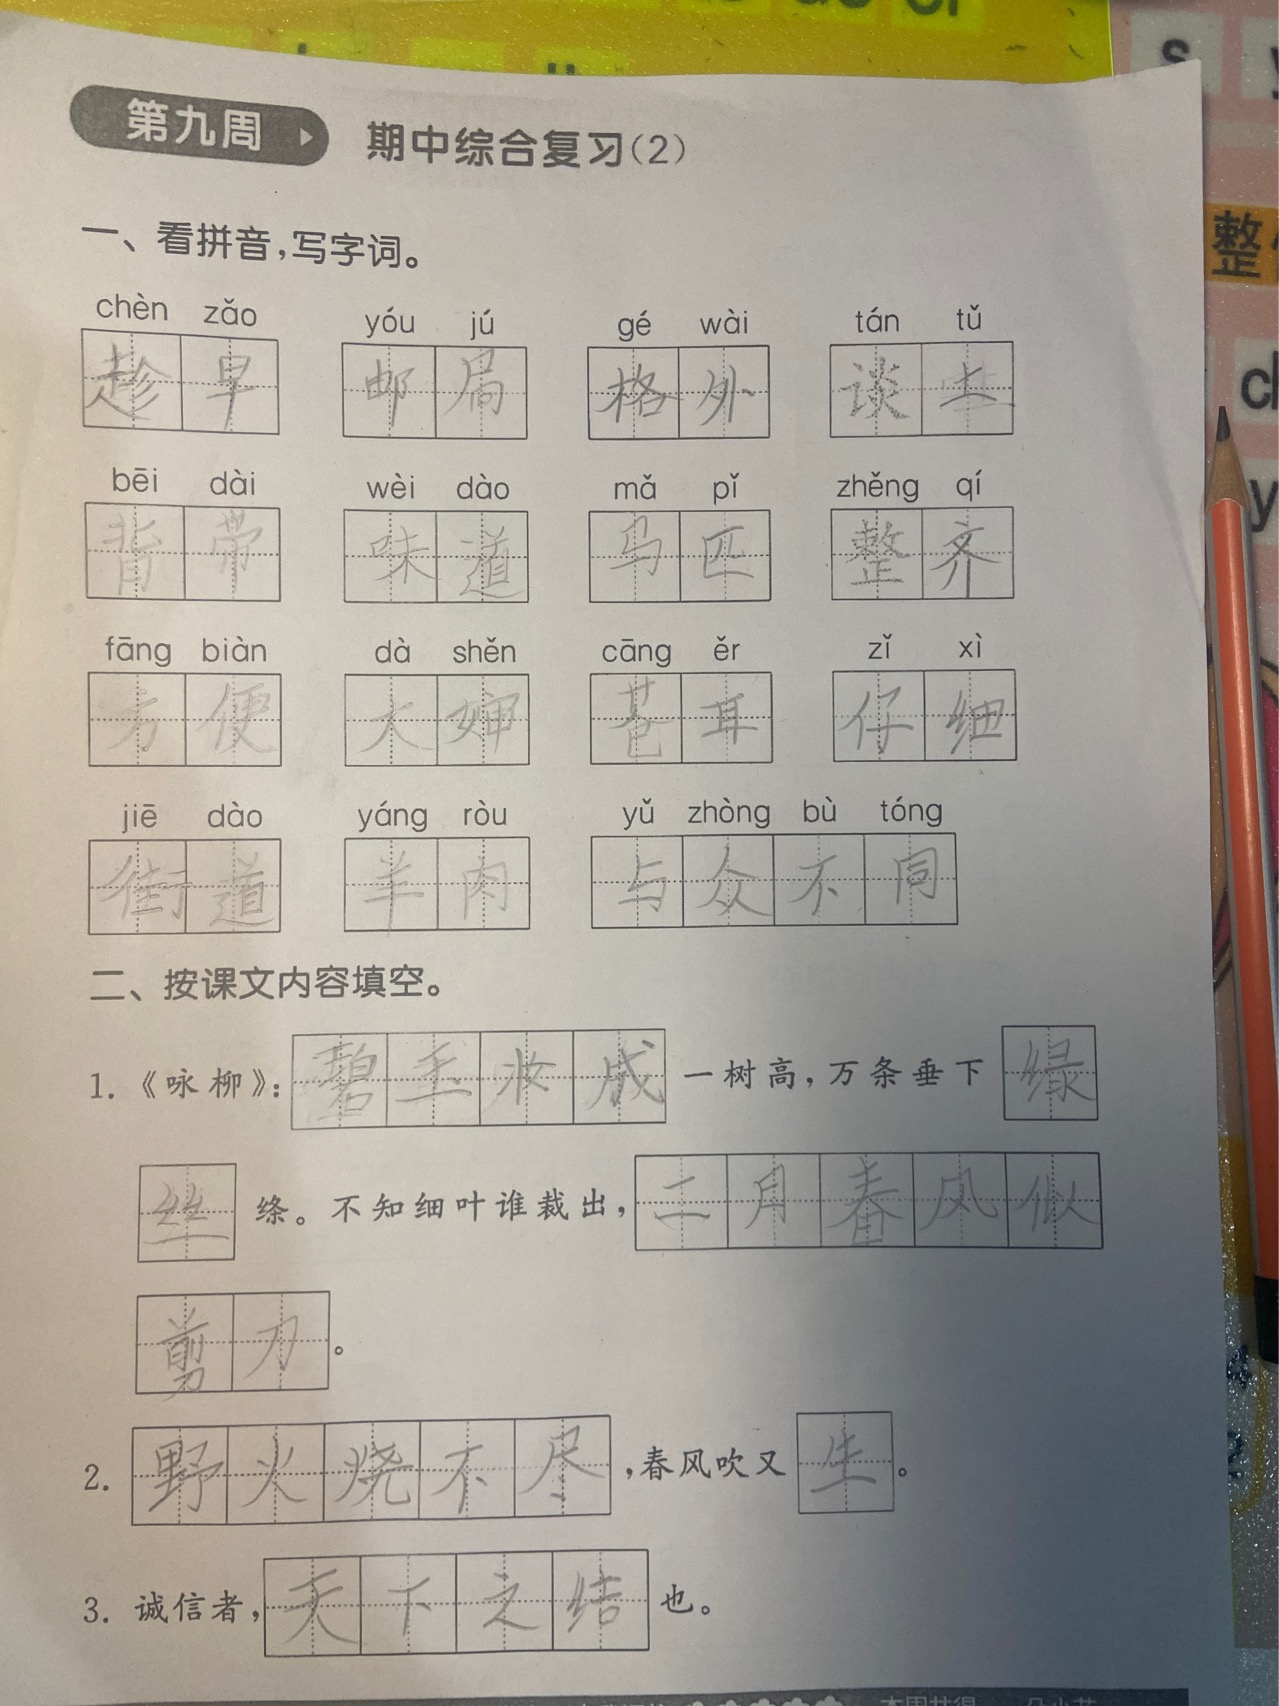 第九周 期中综合复习(2)
一、看拼音,写字词。
chèn zǎo yóu jú gé wài tán tǔ
趁早 邮局 格外 谈土
bēi dài wèi dào mǎ pǐ zhěng qí
背带 味道 马匹 整齐
fāng biàn dà shěn cāng ěr zǐ xì
方便 大婶 苍耳 仔细
jiē dào yáng ròu yǔ zhòng bù tóng
街道 羊肉 与众不同
二、按课文内容填空。
1.《咏柳》:碧玉妆成一树高,万条垂下绿
丝绦。不知细叶谁裁出,二月春风似
剪刀。
2. 野火烧不尽,春风吹又生。
3. 诚信者,天下之结也。
整
s